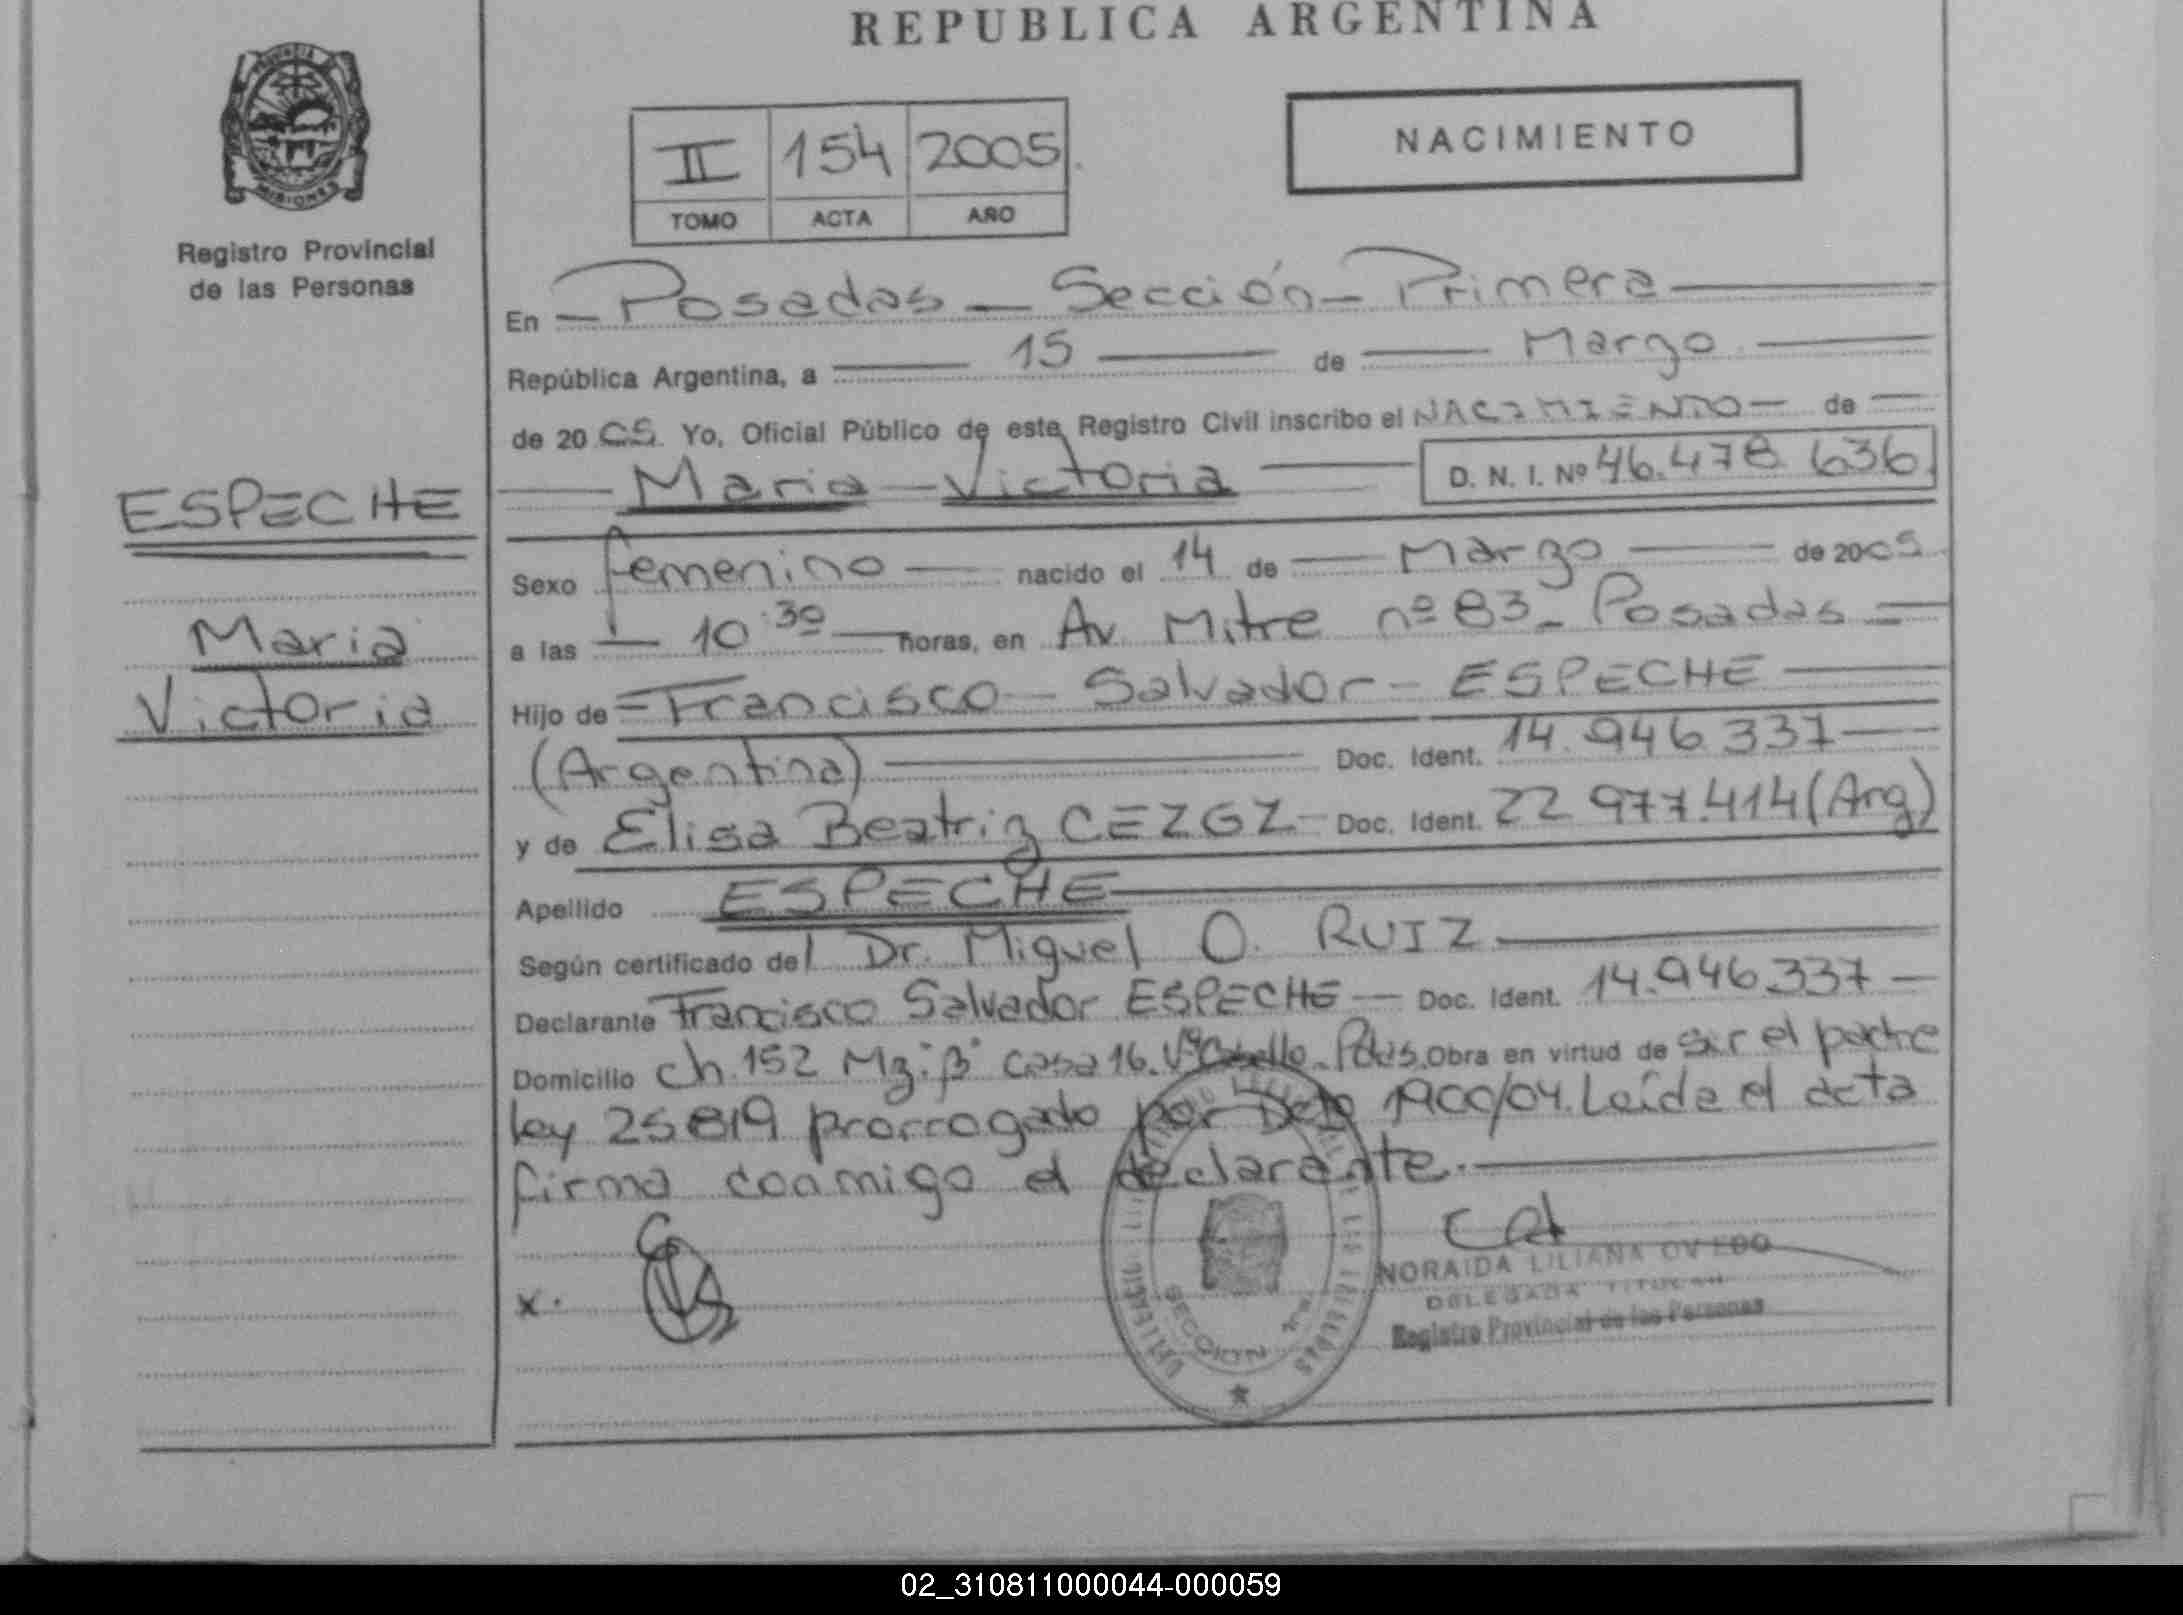 REPUBLICA ARGENTINA
PROVINCIA DE
MISIONES
Registro Provincial
de las Personas
II 154 2005
TOMO ACTA AÑO
NACIMIENTO
En Posadas - Sección - Primera
República Argentina, a 15 de Marzo
de 2005. Yo, Oficial Público de este Registro Civil inscribo el NACIMIENTO - de
Maria - Victoria D. N. I. Nº 46.478.636
ESPECHE
Maria
Victoria
Sexo femenino nacido el 14 de Marzo de 2005
a las 10:30 horas, en Av. Mitre nº 83 - Posadas
Hijo de Francisco - Salvador - ESPECHE
(Argentina) Doc. Ident. 14.946.337
y de Elisa Beatriz Doc. Ident. 22.977.414 (Arg)
Apellido ESPECHE
Según certificado del Dr. Miguel O. RUIZ
Declarante Francisco Salvador ESPECHE - Doc. Ident. 14.946.337 -
Domicilio Ch. 152 Mz. "B" Casa 16. Vº Cabello - Pdas. Obra en virtud de ser el padre
ley 25819 prorrogado por Dcto 1900/04. Leída el acta
firma conmigo el declarante.
x.
NORAIDA LILIANA OVIEDO
DELEGADA TITULAR
Registro Provincial de las Personas
SECCION
02_310811000044-000059